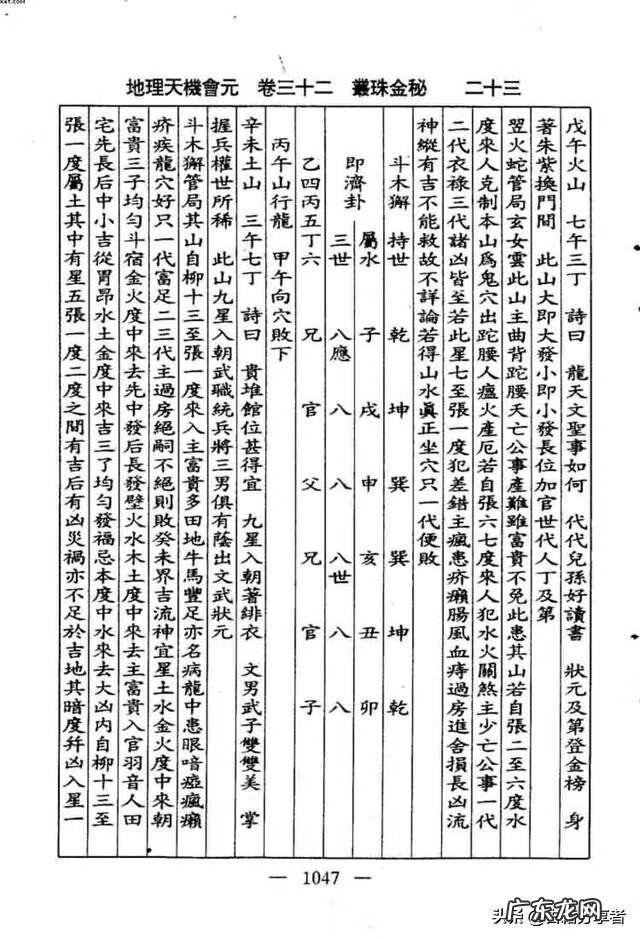 xet.com
地理天機會元　卷三十二　叢珠金秘　二十三
戊午火山　七午三丁　詩曰　龍天文聖事如何　代代兒孫好讀書　狀元及第登金榜　身
著朱紫換門閭　此山大即大發小即小發長位加官世代人丁及第
翌火蛇管局玄女雲此山主曲背跎腰夭亡公事產難雖富貴不免此患其山若自張二至六度水
度來人克制本山爲鬼穴出跎腰人瘟火產厄若自張六七度來人犯水火關煞主少亡公事一代
二代衣祿三代諸凶皆至若此星七至張一度犯差錯主瘋患疥癩腸風血痔過房進舍損長凶流
神縱有吉不能救故不詳論若得山水眞正坐穴只一代便敗
斗木獬　持世　乾　坤　巽　巽　坤　乾
屬水　子　戌　申　亥　丑　卯
即濟卦
三世　八應　八　八　八世　八　八
乙四丙五丁六　兄　官　父　兄　官　子
丙午山行龍　甲午向穴敗下
辛未土山　三午七丁　詩曰　貴堆館位甚得宜　九星入朝著緋衣　文男武子雙雙美　掌
握兵權世所稀　此山九星入朝武職統兵將三男俱有蔭出文武狀元
斗木獬管局其山自柳十三至張一度來入主富貴多田地牛馬豐足亦名病龍中患眼啞瘂瘋癩
疥疾龍穴好只一代富足二三代主過房絕嗣不絕則敗癸未界吉流神宜星土水金火度中來朝
富貴三子均勻斗宿金火度中來去先中發后長發壁火水木土度中來去主富貴入官羽音人田
宅先長后中小吉從胃昂水土金度中來吉三了均勻發福忌本度中水來去大凶內自柳十三至
張一度屬土其中有星五張一度二度之間有吉后有凶災禍亦不足於吉地其暗度幷凶入星一
— 1047 —
头条
者
广东龙网